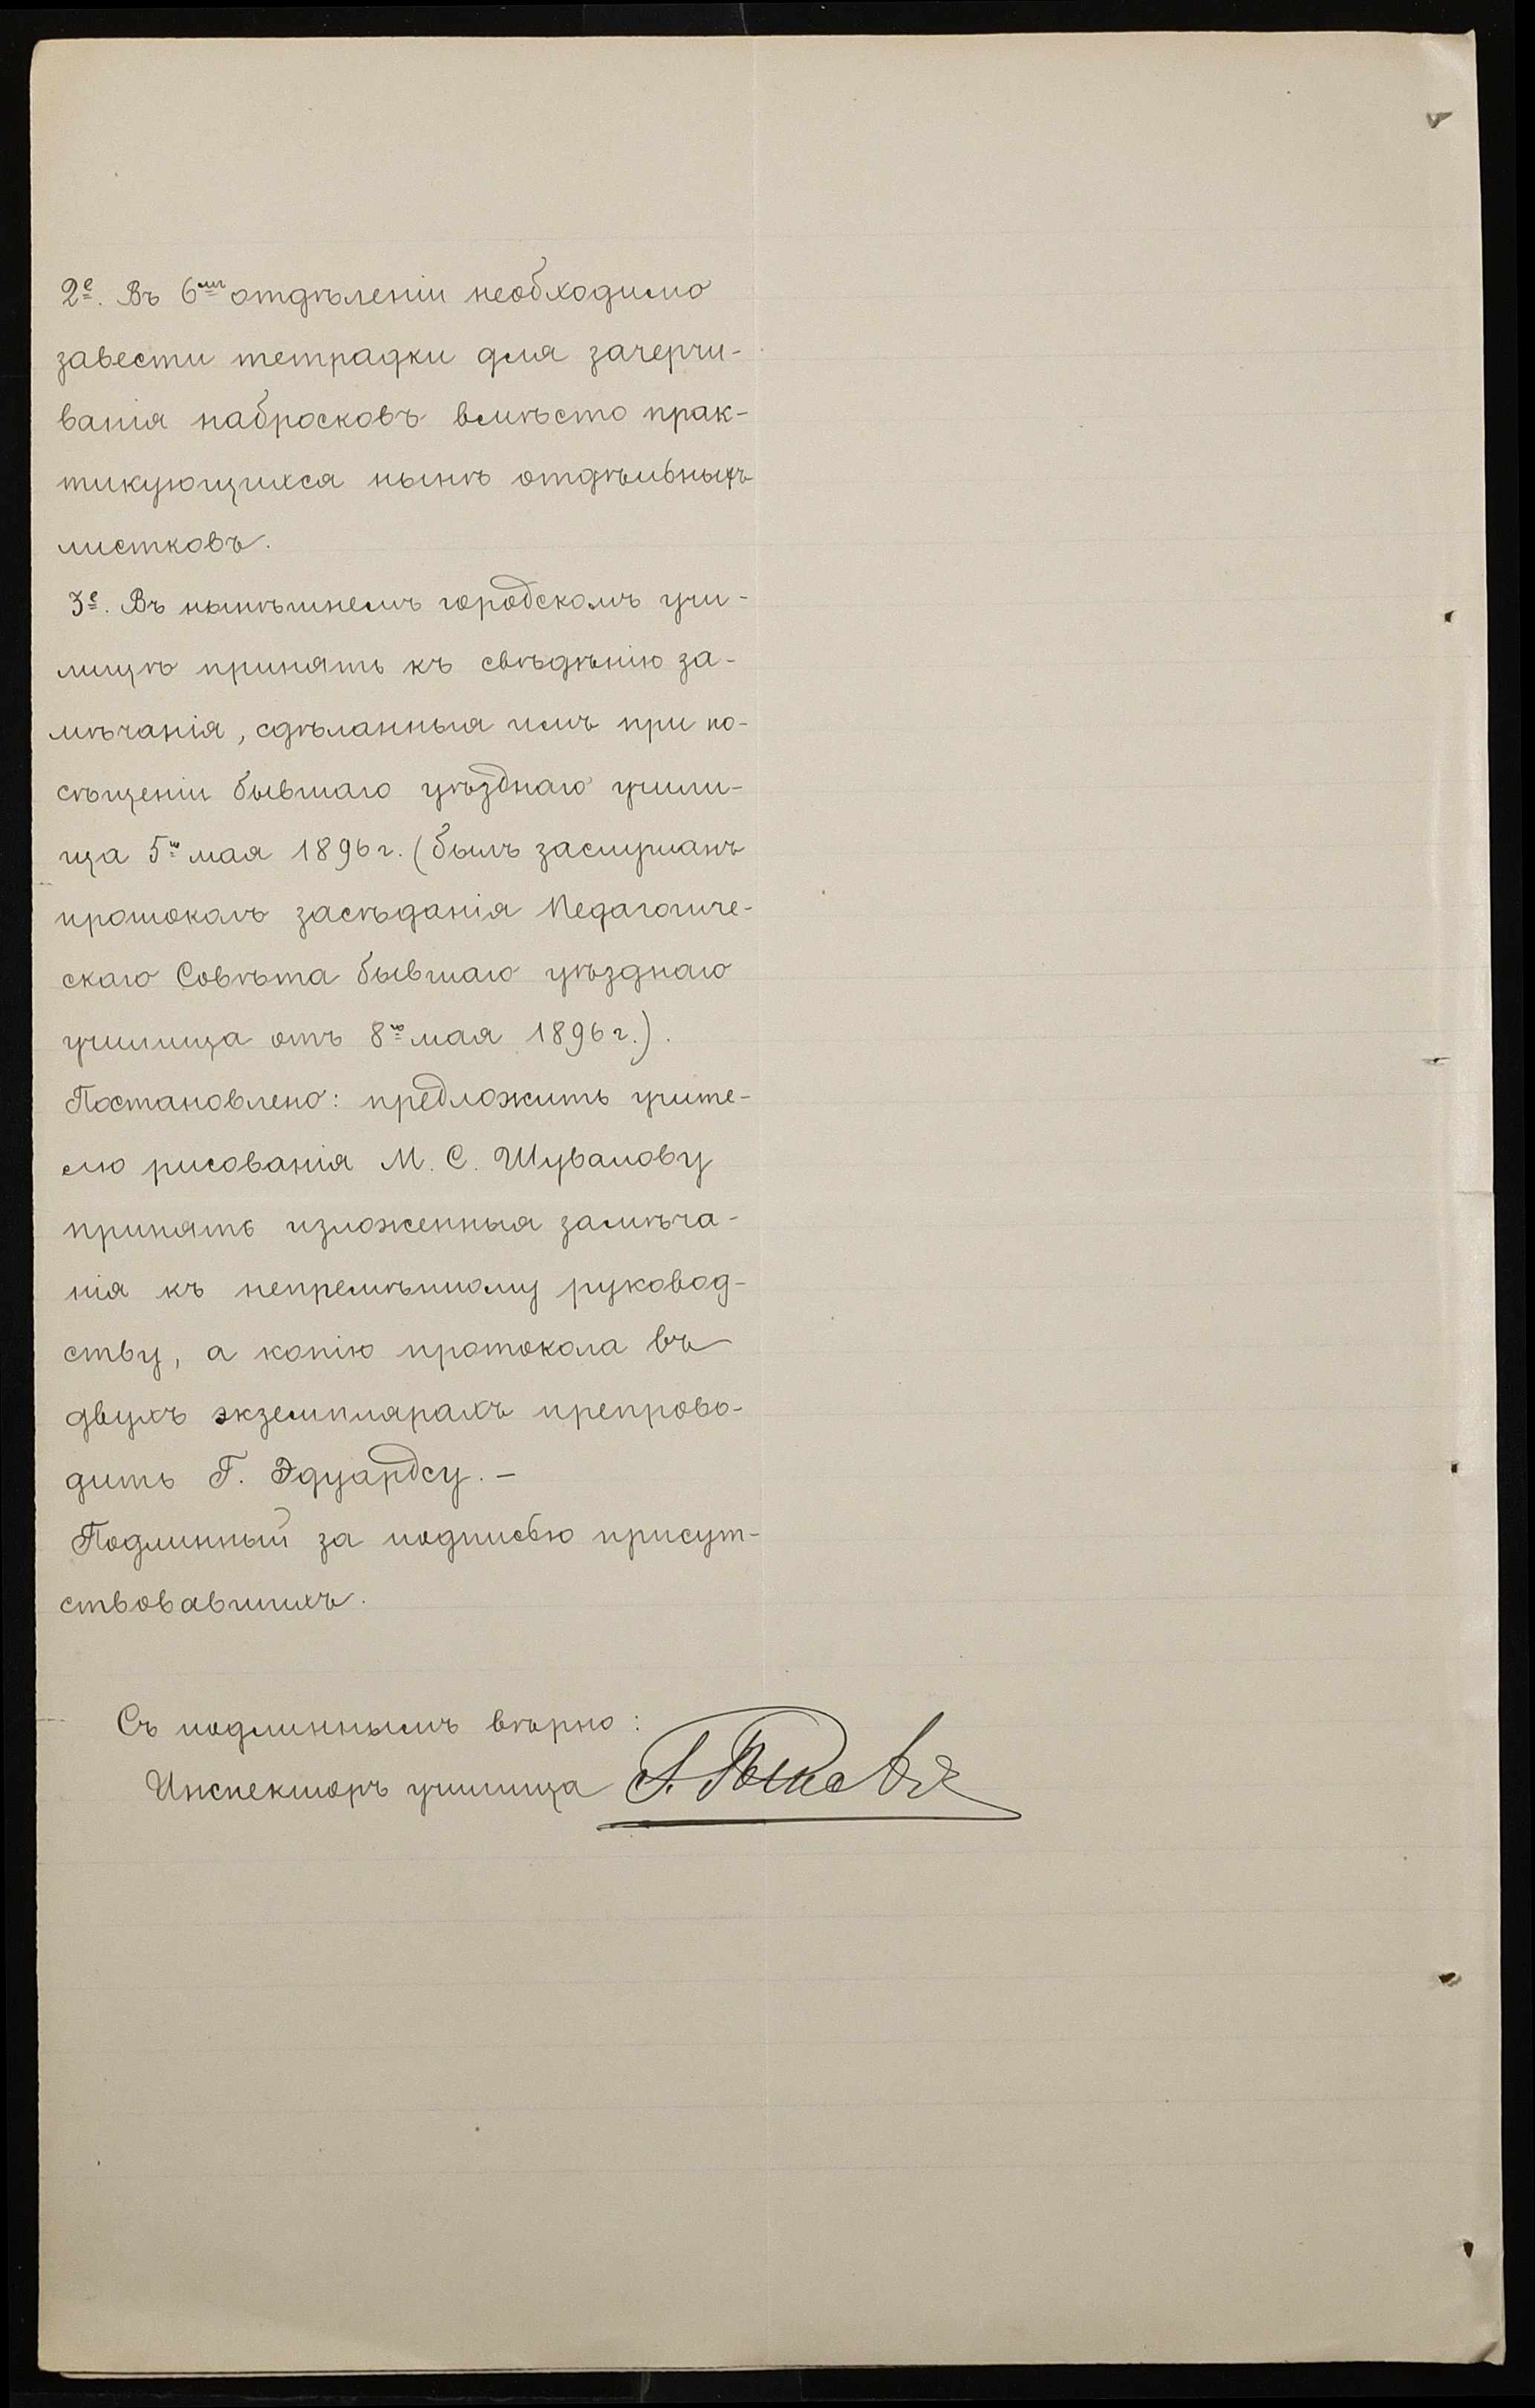 2е. Въ 6мъ отдѣленіи необходимо
завести тетрадки для зачерчи-
ванія набросковъ вмѣсто прак-
тикующихся нынѣ отдѣльныхъ
листковъ.
3е. Въ нынѣшнемъ городскомъ учи-
лищѣ принять къ свѣдѣнію за-
мѣчанія, сдѣланныя имъ при по-
сѣщеніи бывшаго уѣзднаго учили-
ща 5го мая 1896 г. (былъ заслушанъ
протоколъ засѣданія Педагогиче-
скаго Совѣта бывшаго уѣзднаго
училища отъ 8го мая 1896 г.).
Постановлено: предложить учите-
лю рисованія М. С. Шувалову
принять изложенныя замѣча-
нія къ непремѣнному руковод-
ству, а копію протокола въ
двухъ экземплярахъ препрово-
дить Г. Эдуардсу. –
Подлинный за подписью присут-
ствовавшихъ.
Съ подлиннымъ вѣрно:
Инспекторъ училища